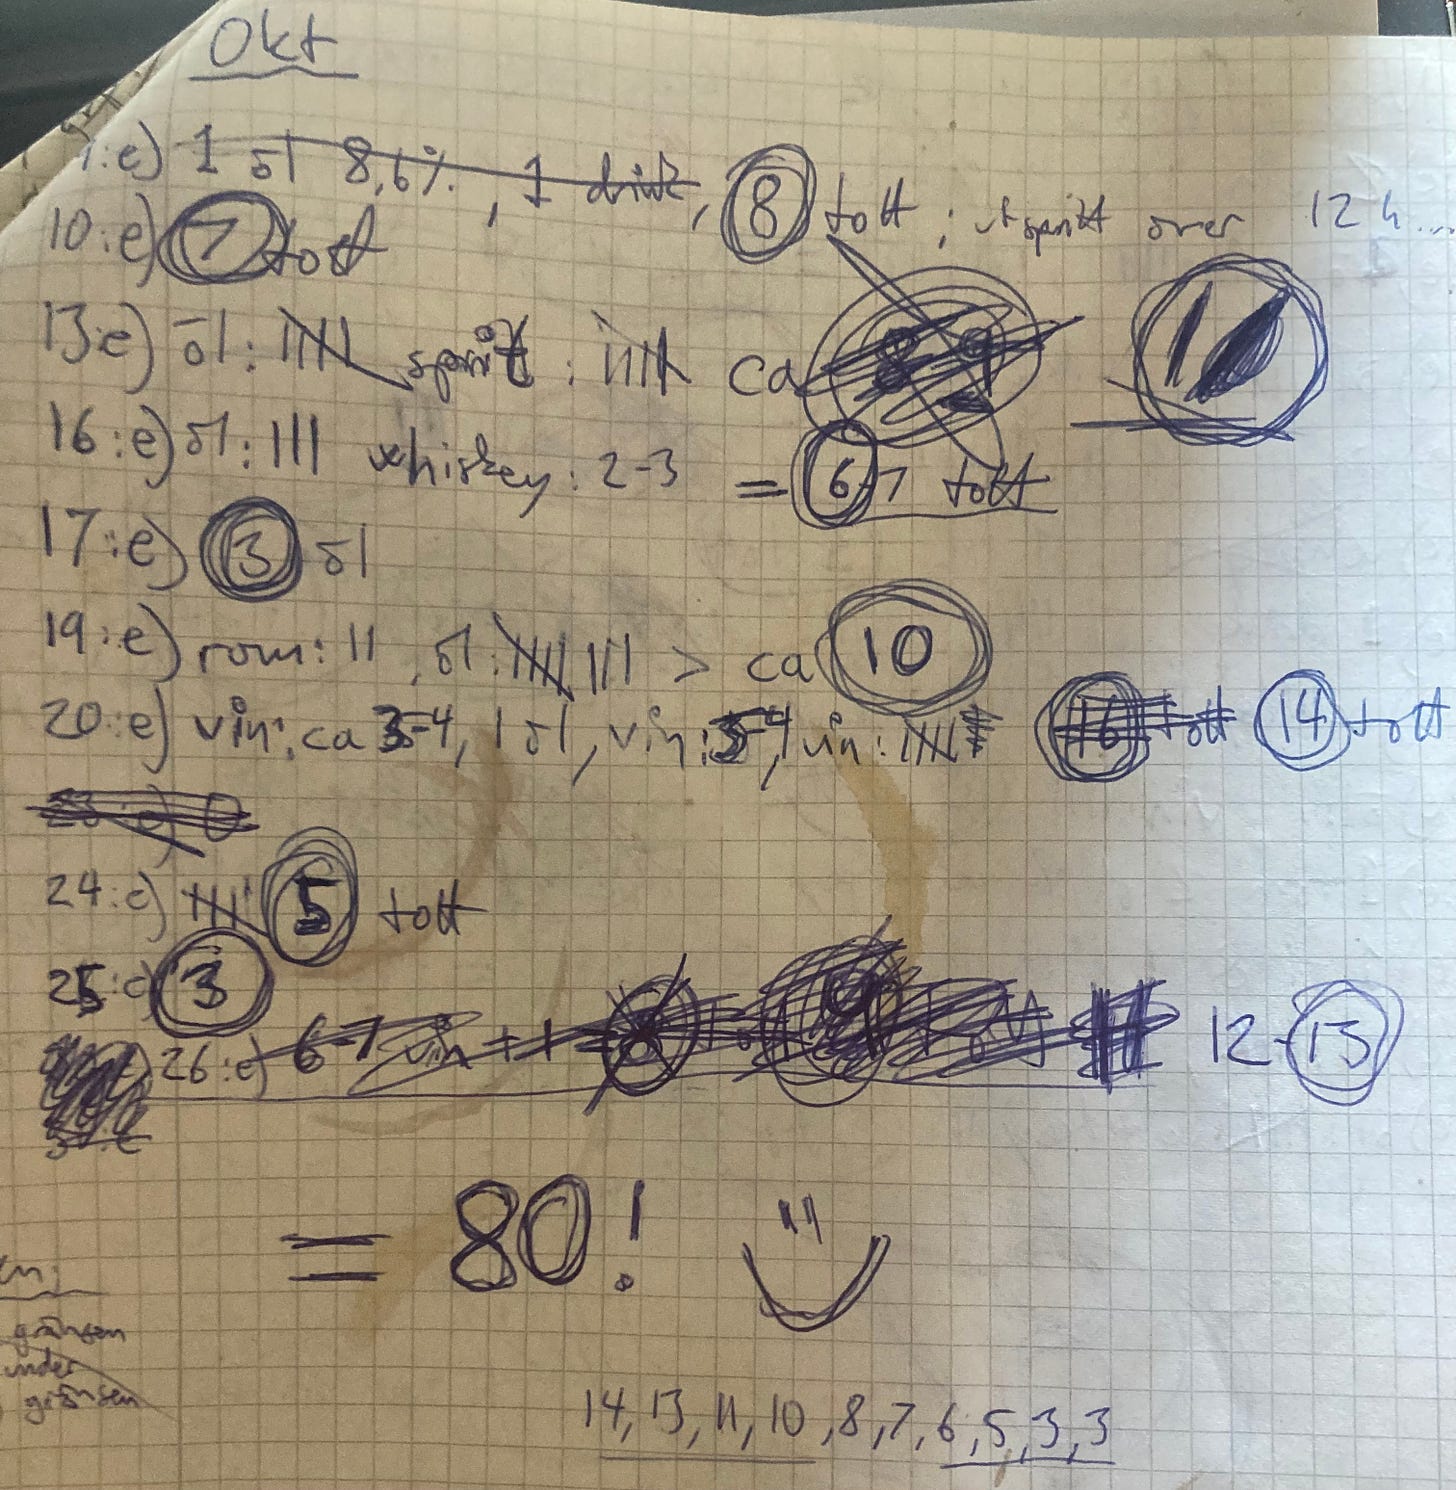 Okt
:e) 1 öl 8,6%, 1 drink, 8 tott; utspritt över 12 h...
10:e) 7 tott
13:e) öl: sprit: ca 11
16:e) öl: III whiskey: 2-3 = 6-7 tott
17:e) 3 öl
19:e) rom: II, öl: > ca 10
20:e) vin: ca 3-4, 1 öl, vin: 3-4, vin: 16 tott 14 tott
23:e) 0
24:e) 5 tott
25:e) 3
26:e) 6-7 vin + 1 12-13
= 80!
gränsen
under
gränsen
14, 13, 11, 10, 8, 7, 6, 5, 3, 3